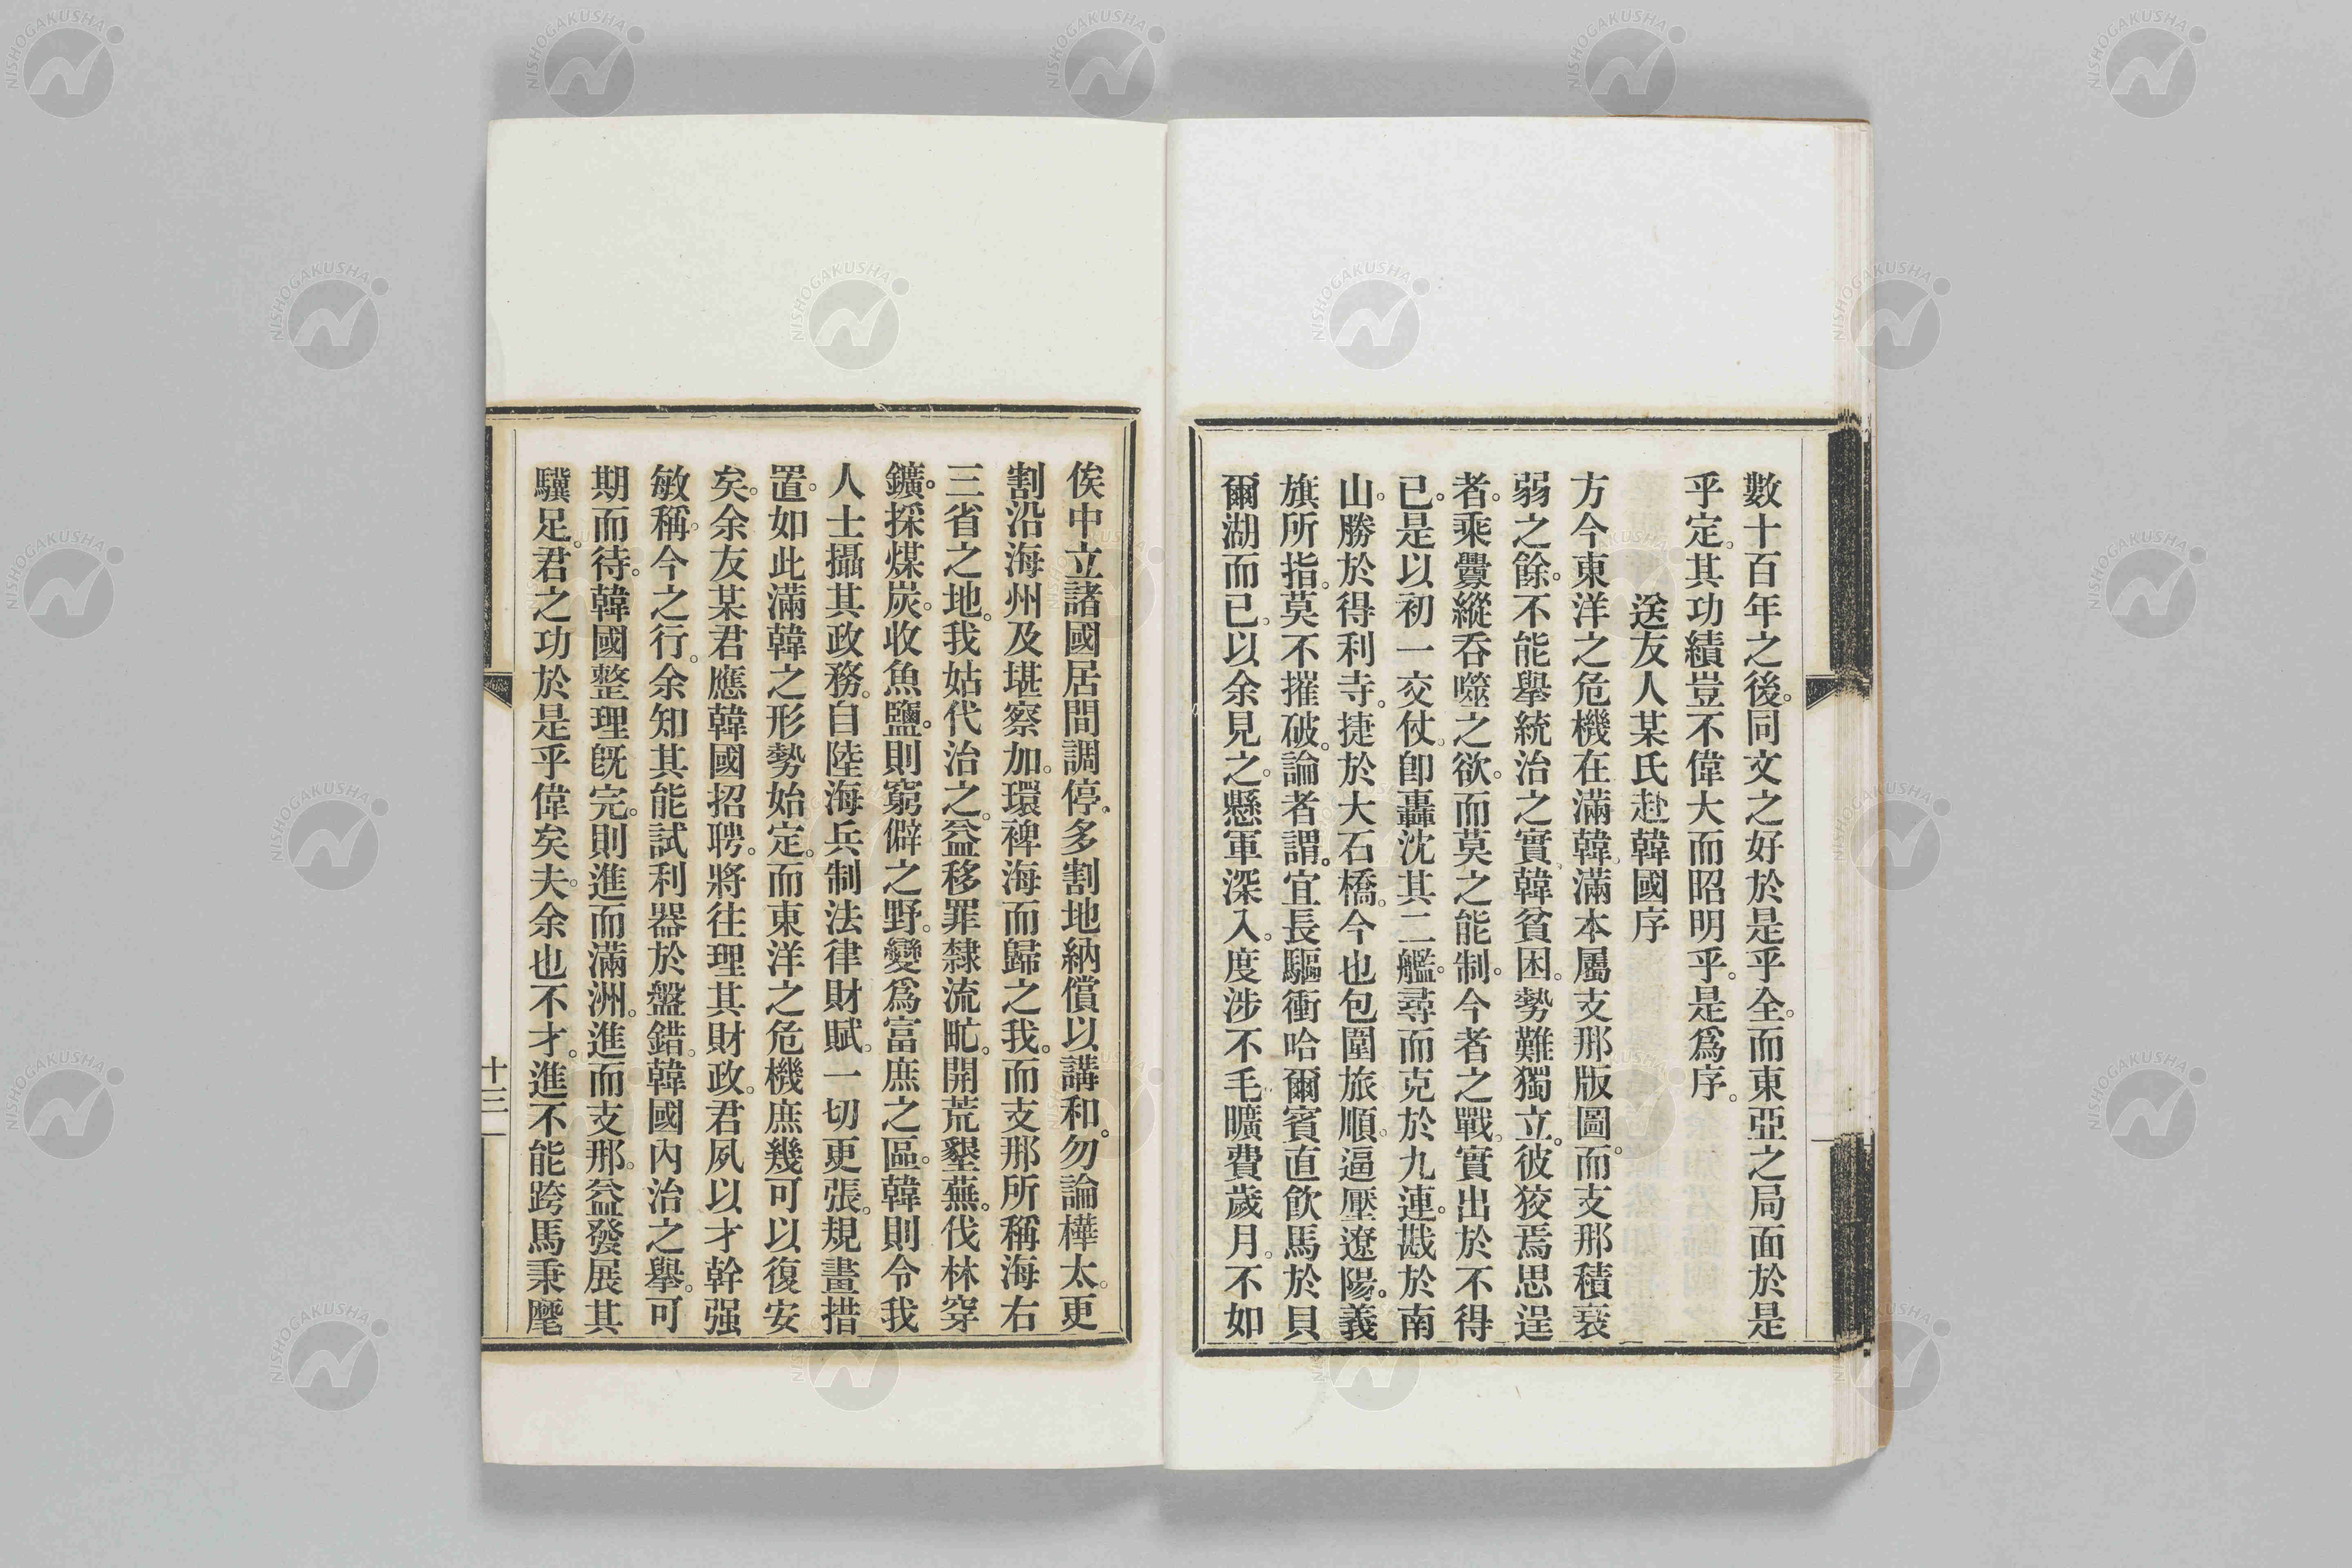 數十百年之後。同文之好於是乎全。而東亞之局面於是
乎定。其功績豈不偉大而昭明乎。是爲序。
送友人某氏赴韓國序
方今東洋之危機在滿韓。滿本屬支那版圖。而支那積衰
弱之餘。不能擧統治之實。韓貧困。勢難獨立。彼狡焉思逞
者。乘釁縱吞噬之欲。而莫之能制。今者之戰。實出於不得
已。是以初一交仗。卽轟沈其二艦。尋而克於九連。戡於南
山。勝於得利寺。捷於大石橋。今也包圍旅順。逼壓遼陽。義
旗所指。莫不摧破。論者謂。宜長驅衝哈爾賓直飮馬於貝
爾湖而已。以余見之。懸軍深入。度涉不毛。曠費歲月。不如
俟中立諸國居間調停。多割地納償以講和。勿論樺太。更
割沿海州及堪察加。環裨海而歸之我。而支那所稱海右
三省之地。我姑代治之。益移罪隸流氓。開荒墾蕪。伐林穿
鑛。採煤炭。收魚鹽。則窮僻之野。變爲富庶之區。韓則令我
人士攝其政務。自陸海兵制法律財賦。一切更張。規畫措
置。如此滿韓之形勢始定。而東洋之危機庶幾可以復安
矣。余友某君應韓國招聘。將往理其財政。君夙以才幹强
敏稱。今之行。余知其能試利器於盤錯。韓國內治之擧。可
期而待。韓國整理旣完。則進而滿洲。進而支那。益發展其
驥足。君之功於是乎偉矣夫。余也不才。進不能跨馬秉麾
十三
NISHOGAKUSHA